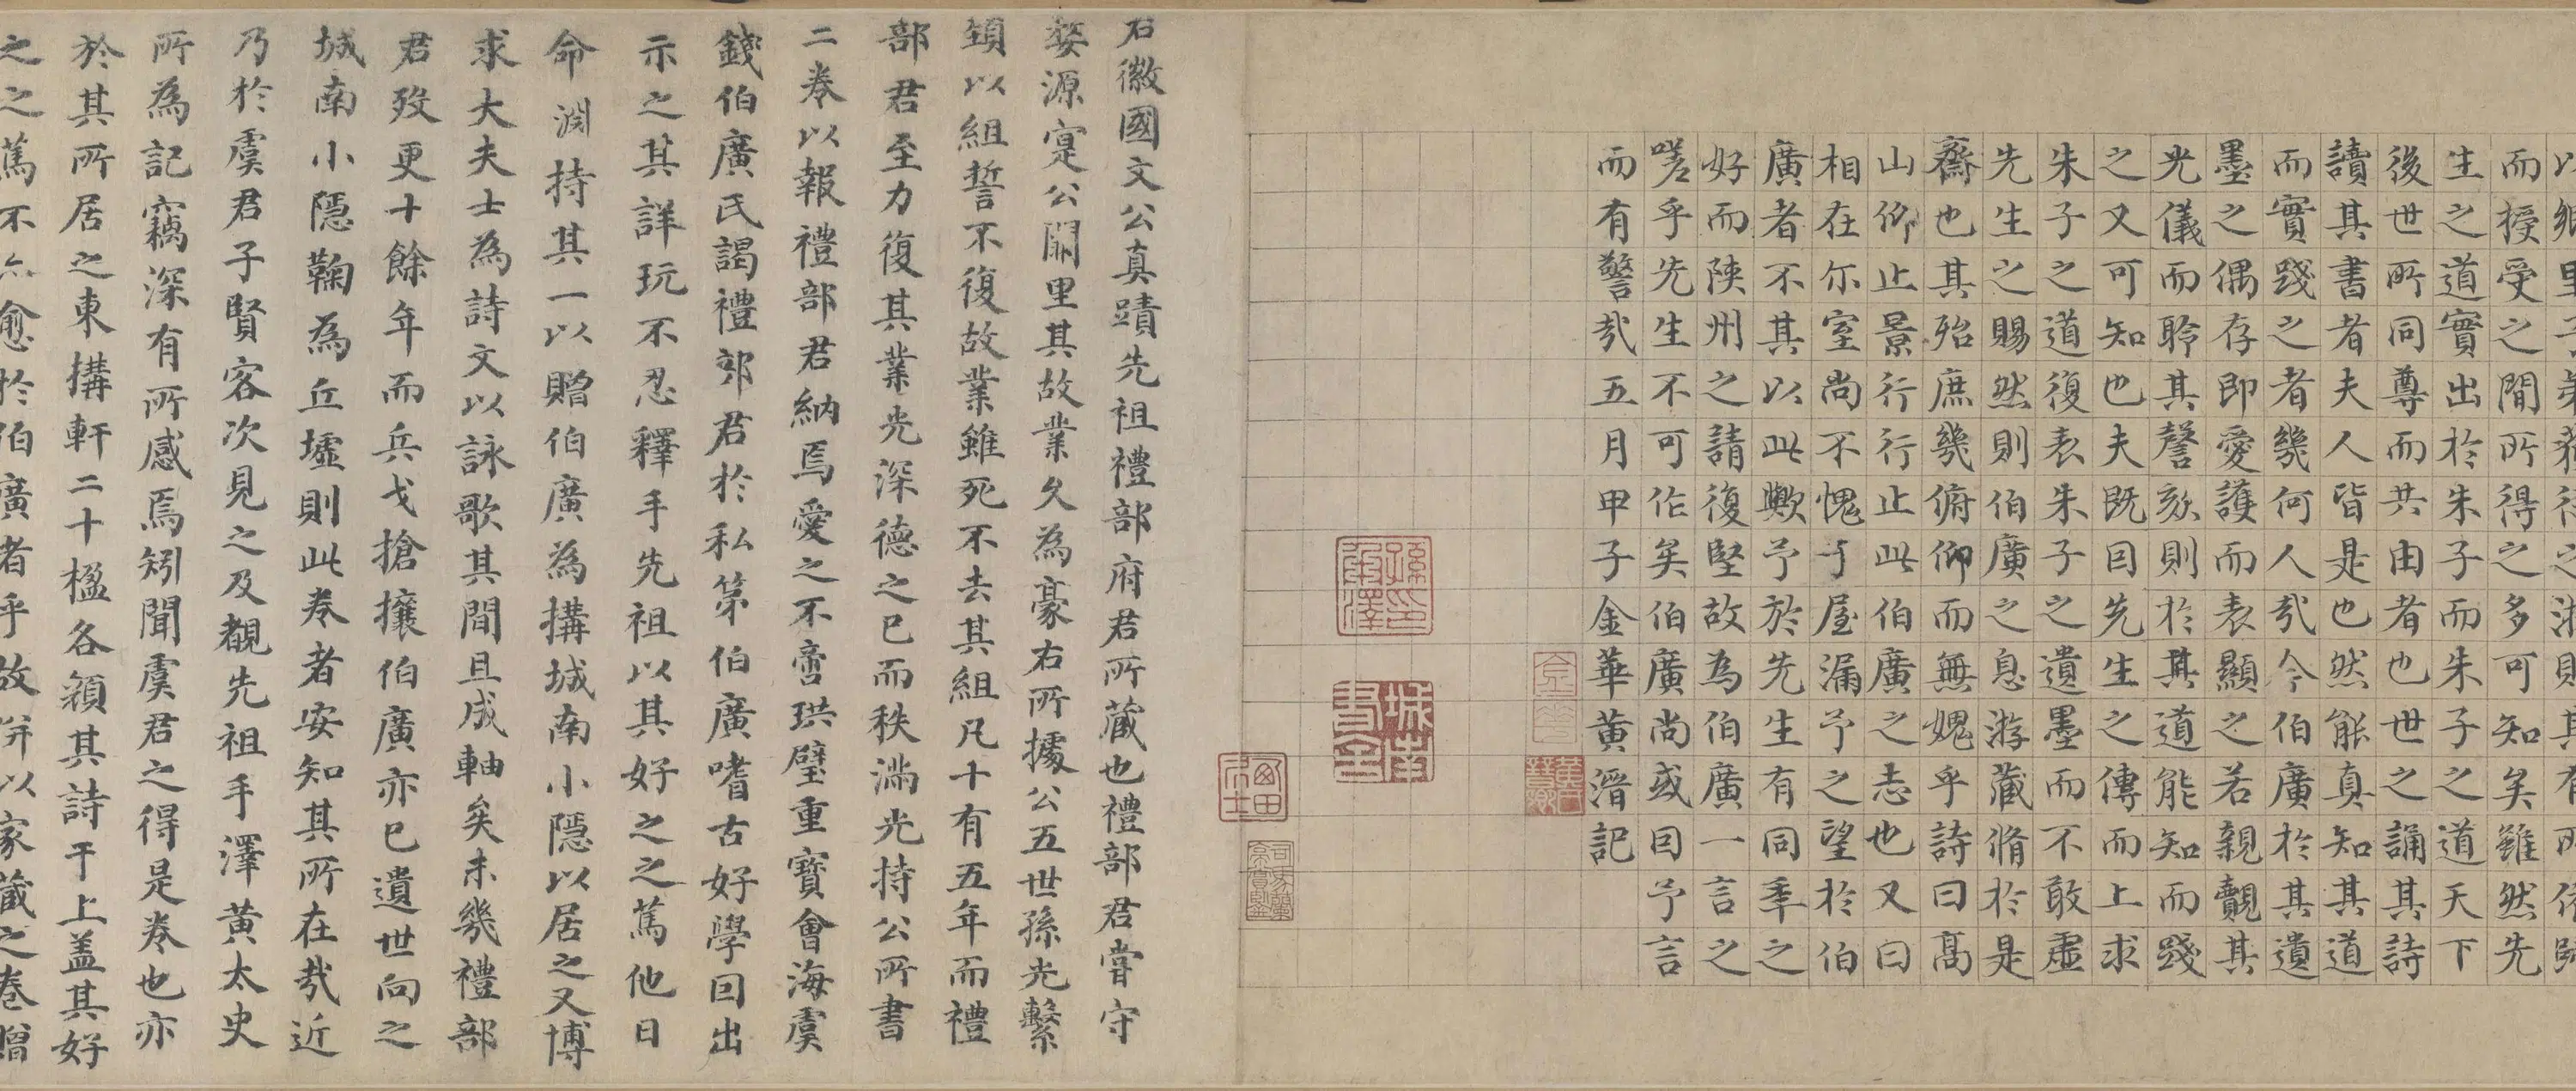 而授受之間所得之多可知矣雖然先
生之道實出於朱子而朱子之道天下
後世所同尊而共由者也世之誦其詩
讀其書者夫人皆是也然能真知其道
而實踐之者幾何人哉今伯廣於其遺
墨之偶存即愛護而表顯之若親覿其
光儀而聆其謦欬則於其道能知而踐
之又可知也夫既因先生之傳而上求
朱子之道復表朱子之遺墨而不敢虛
先生之賜然則伯廣之息游藏脩於是
齋也其殆庶幾俯仰而無媿乎詩曰高
山仰止景行行止此伯廣之志也又曰
相在尓室尚不愧于屋漏予之望於伯
廣者不其以此歟予於先生有同年之
好而陝州之請復堅故為伯廣一言之
嗟乎先生不可作矣伯廣尚或因予言
而有警哉五月甲子金華黃溍記
右徽國文公真蹟先祖禮部府君所藏也禮部君嘗守
婺源寔公闕里其故業久為豪右所據公五世孫光繫
頸以組誓不復故業雖死不去其組凡十有五年而禮
部君至力復其業光深德之已而秩滿光持公所書
二卷以報禮部君納焉愛之不啻珙璧重寶會海虞
錢伯廣氏謁禮部君於私第伯廣嗜古好學因出
示之其詳玩不忍釋手先祖以其好之之篤他日
命淵持其一以贈伯廣為構城南小隱以居之又博
求大夫士為詩文以詠歌其間且成軸矣未幾禮部
君歿更十餘年而兵戈搶攘伯廣亦已遺世向之
城南小隱鞠為丘墟則此卷者安知其所在哉近
乃於虞君子賢客次見之及覩先祖手澤黃太史
所為記竊深有所感焉矧聞虞君之得是卷也亦
於其所居之東構軒二十楹各額其詩于上蓋其好
之之篤不亦愈於伯廣者乎故併以家藏之卷贈